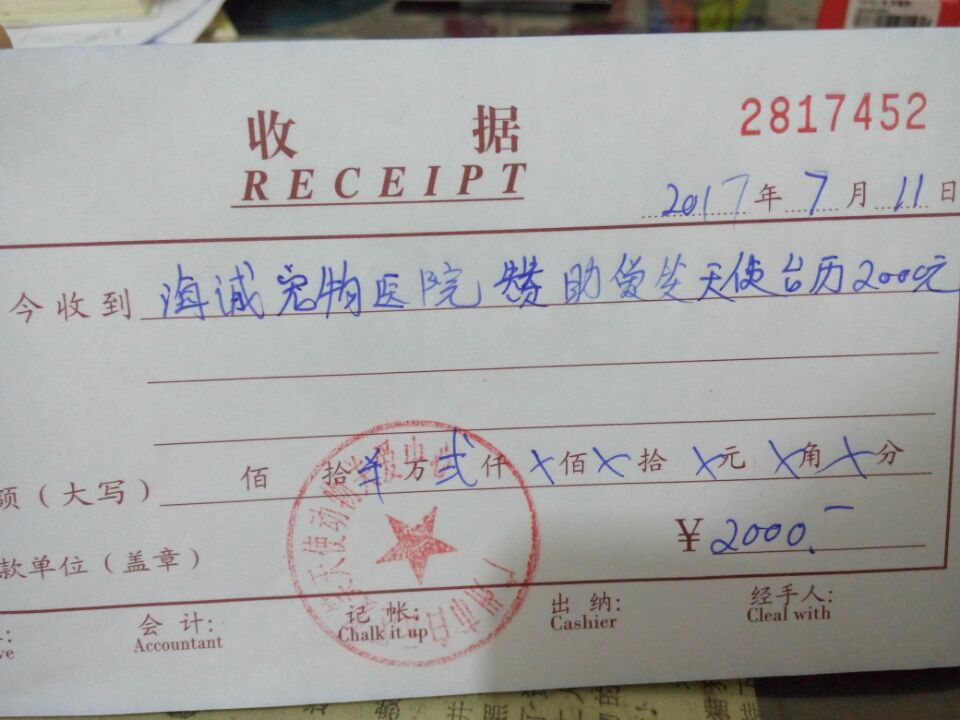 收 据
RECEIPT
2817452
2017年7月11日
今收到 海诚宠物医院 赞助微笑天使台历2000元
额（大写） 佰 拾 万 贰 仟 X 佰 X 拾 X 元 X 角 X 分
¥ 2000.-
款单位（盖章）
会 计:
Accountant
记 帐:
Chalk it up
出 纳:
Cashier
经手人:
Cleal with
广州市
天使动物